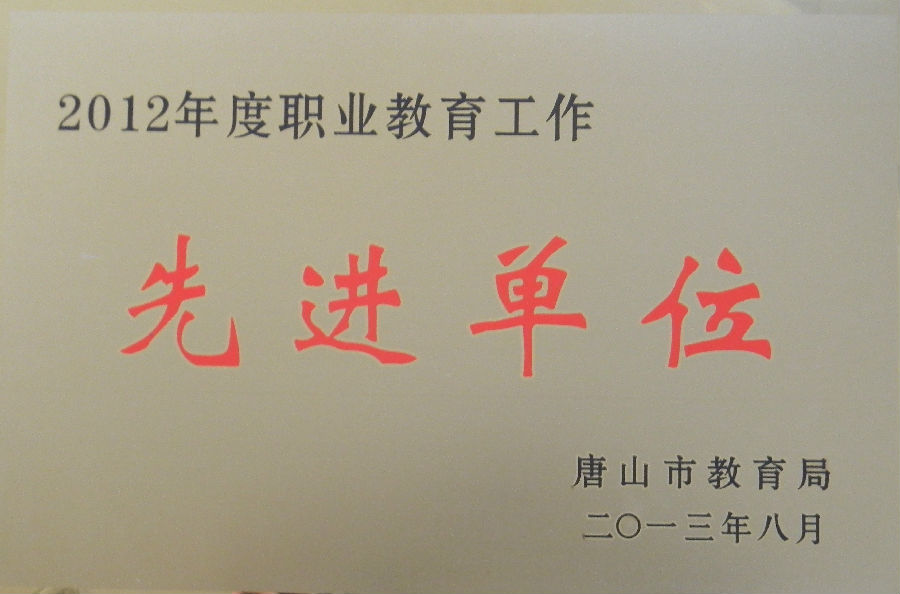 2012年度职业教育工作
先进单位
唐山市教育局
二〇一三年八月